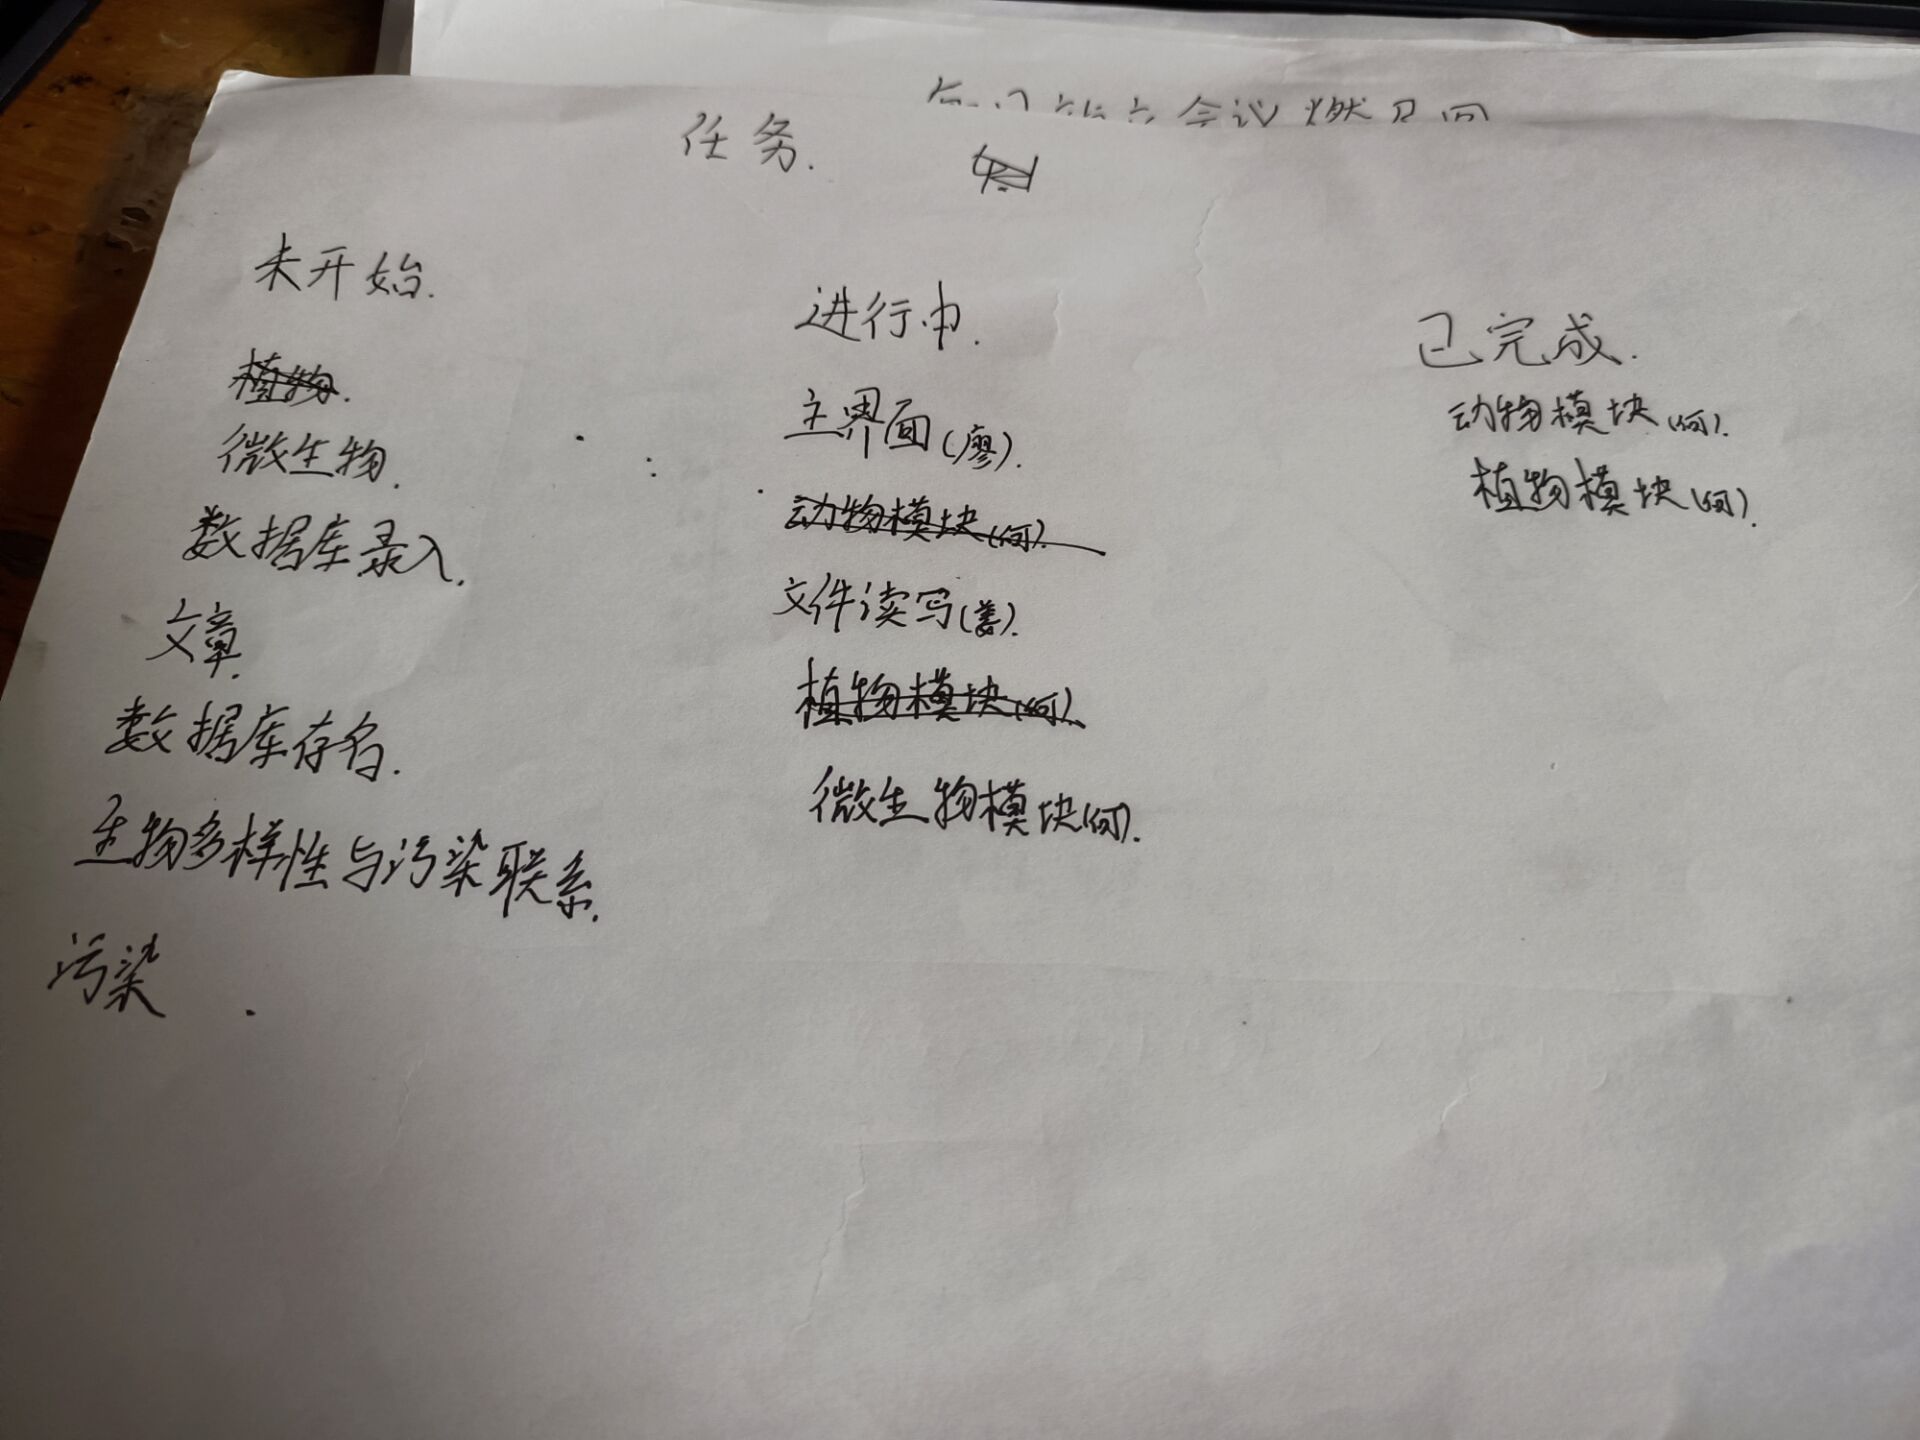 会议燃尽图
任务.
未开始.
植物.
微生物.
数据库录入.
文章.
数据库存名.
生物多样性与污染联系.
污染.
进行中.
主界面(廖).
动物模块(何).
文件读写(姜).
植物模块(何).
微生物模块(何).
已完成.
动物模块(何).
植物模块(何).